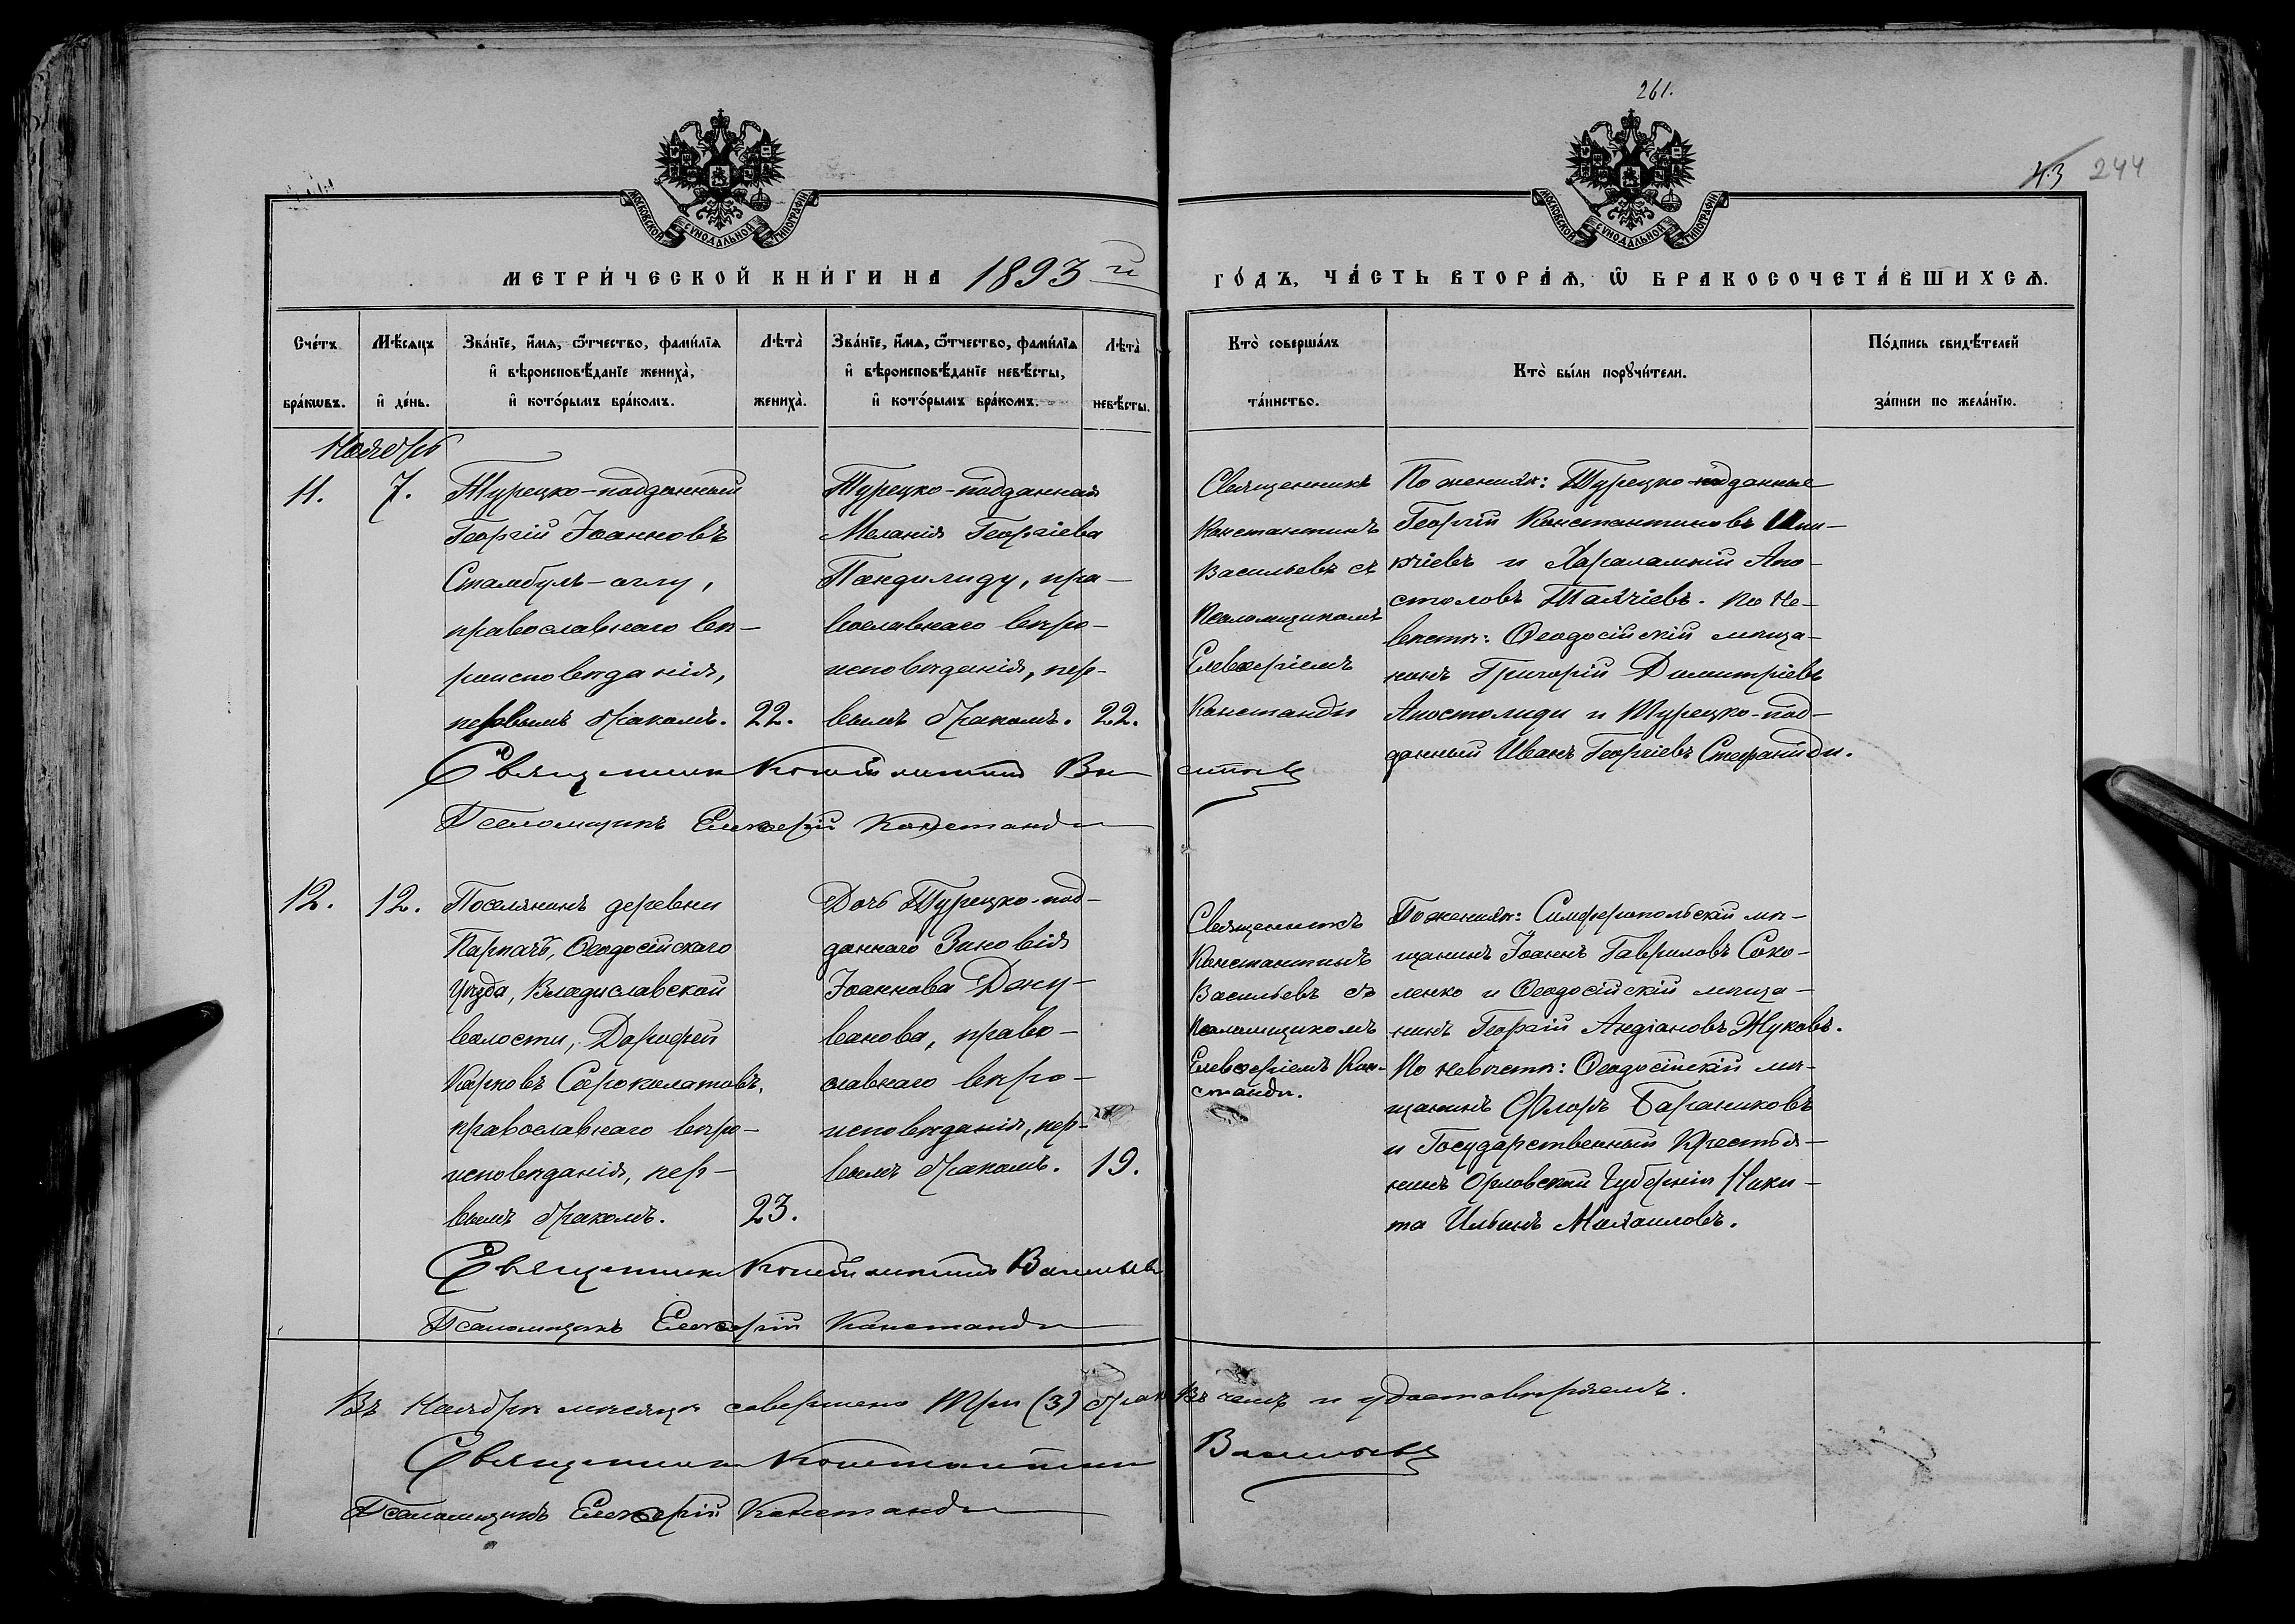 261.
43 244
МОСКОВСКОЙ СѴНОДАЛЬНОЙ ТИПОГРАФІИ
МОСКОВСКОЙ СѴНОДАЛЬНОЙ ТИПОГРАФІИ
МЕТРИ́ЧЕСКОЙ КНИ́ГИ НА 1893й
ГО́ДЪ, ЧА́СТЬ ВТОРА́Ѧ, Ѽ БРАКОСОЧЕТА́ВШИХСѦ.
Сче́тъ бра́кѡвъ.
Мѣ́сѧцъ и҆ де́нь.
Зва́нїе, и҆́мѧ, ѻ҆́тчество, фами́лїѧ
и҆ вѣроисповѣ́данїе жениха̀,
и҆ кото́рымъ бра́комъ.
Лѣта̀ жениха̀.
Зва́нїе, и҆́мѧ, ѻ҆́тчество, фами́лїѧ
и҆ вѣроисповѣ́данїе невѣ́сты,
и҆ кото́рымъ бра́комъ.
Лѣта̀ невѣ́сты.
Кто̀ соверша́лъ
та́инство.
Кто̀ бы́ли порꙋчи́тели.
По́дпись свидѣ́телей
за́писи по жела́нїю.
Ноябрь
11.
7.
Турецко-подданный
Георгій Іоанновъ
Стамбулъ-оглу,
православнаго вѣ-
роисповѣданія,
первымъ бракомъ.
22.
Турецко-подданная
Меланія Георгіева
Пандилиду, пра-
вославнаго вѣро-
исповѣданія, пер-
вымъ бракомъ.
22.
Священникъ
Константинъ
Васильевъ съ
Псаломщикомъ
Елевѳеріемъ
Констанди
По женихѣ: Турецко-подданные
Георгій Константиновъ
и Харалампій Апо-
столовъ Таячіевъ. По не-
вѣстѣ: Ѳеодосійскій мѣща-
нинъ Григорій Димитріевъ
Апостолиди и Турецко-под-
данный Иванъ Георгіевъ Стефаниди.
Священникъ Константинъ Васильевъ
Псаломщикъ Елевѳерій Констанди
12.
12.
Поселянинъ деревни
Парпачъ, Ѳеодосійскаго
Уѣзда, Владиславской
волости, Дорофей
Карповъ Сороколатовъ,
православнаго вѣро-
исповѣданія, пер-
вымъ бракомъ.
23.
Дочь Турецко-под-
даннаго Зиновія
Іоаннова Даку-
ванова, право-
славнаго вѣро-
исповѣданія, пер-
вымъ бракомъ.
19.
Священникъ
Константинъ
Васильевъ съ
Псаломщикомъ
Елевѳеріемъ Кон-
станди.
По женихѣ: Симферопольскій мѣ-
щанинъ Іоаннъ Гавриловъ Соко-
ленко и Ѳеодосійскій мѣща-
нинъ Георгій Андіановъ Жуковъ.
По невѣстѣ: Ѳеодосійскій мѣ-
щанинъ Флоръ Баранниковъ
и Государственный Крестья-
нинъ Орловской Губерніи Ники-
та Ильинъ Михаиловъ.
Священникъ Константинъ Васильевъ
Псаломщикъ Елевѳерій Констанди
Въ Ноябрѣ мѣсяцѣ совершено Три (3) брака Въ чемъ и удостовѣряемъ.
Священникъ Константинъ Васильевъ
Псаломщикъ Елевѳерій Констанди